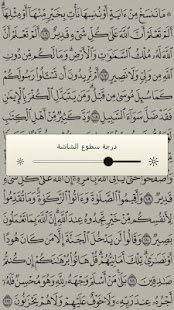 ۞ مَا نَنسَخْ مِنْ ءَايَةٍ أَوْ نُنسِهَا نَأْتِ بِخَيْرٍ مِّنْهَآ أَوْ مِثْلِهَآ
أَلَمْ تَعْلَمْ أَنَّ ٱللَّهَ عَلَىٰ كُلِّ شَىْءٍ قَدِيرٌ ١٠٦ أَلَمْ تَعْلَمْ أَنَّ
ٱللَّهَ لَهُۥ مُلْكُ ٱلسَّمَٰوَٰتِ وَٱلْأَرْضِ وَمَا لَكُم مِّن دُونِ ٱللَّهِ
مِن وَلِىٍّ وَلَا نَصِيرٍ ١٠٧ أَمْ تُرِيدُونَ أَن تَسْـَٔلُوا۟ رَسُولَكُمْ
كَمَا سُئِلَ مُوسَىٰ مِن قَبْلُ وَمَن يَتَبَدَّلِ ٱلْكُفْرَ بِٱلْإِيمَٰنِ
فَقَدْ ضَلَّ سَوَآءَ ٱلسَّبِيلِ ١٠٨ وَدَّ كَثِيرٌ مِّنْ أَهْلِ ٱلْكِتَٰبِ
درجة سطوع الشاشة
حَتَّىٰ يَأْتِىَ ٱللَّهُ بِأَمْرِهِۦٓ إِنَّ ٱللَّهَ عَلَىٰ كُلِّ شَىْءٍ قَدِيرٌ ١٠٩
وَأَقِيمُوا۟ ٱلصَّلَوٰةَ وَءَاتُوا۟ ٱلزَّكَوٰةَ وَمَا تُقَدِّمُوا۟
لِأَنفُسِكُم مِّنْ خَيْرٍ تَجِدُوهُ عِندَ ٱللَّهِ إِنَّ ٱللَّهَ بِمَا تَعْمَلُونَ
بَصِيرٌ ١١٠ وَقَالُوا۟ لَن يَدْخُلَ ٱلْجَنَّةَ إِلَّا مَن كَانَ هُودًا
أَوْ نَصَٰرَىٰ تِلْكَ أَمَانِيُّهُمْ قُلْ هَاتُوا۟ بُرْهَٰنَكُمْ إِن كُنتُمْ
صَٰدِقِينَ ١١١ بَلَىٰ مَنْ أَسْلَمَ وَجْهَهُۥ لِلَّهِ وَهُوَ مُحْسِنٌ فَلَهُۥٓ
أَجْرُهُۥ عِندَ رَبِّهِۦ وَلَا خَوْفٌ عَلَيْهِمْ وَلَا هُمْ يَحْزَنُونَ ١١٢